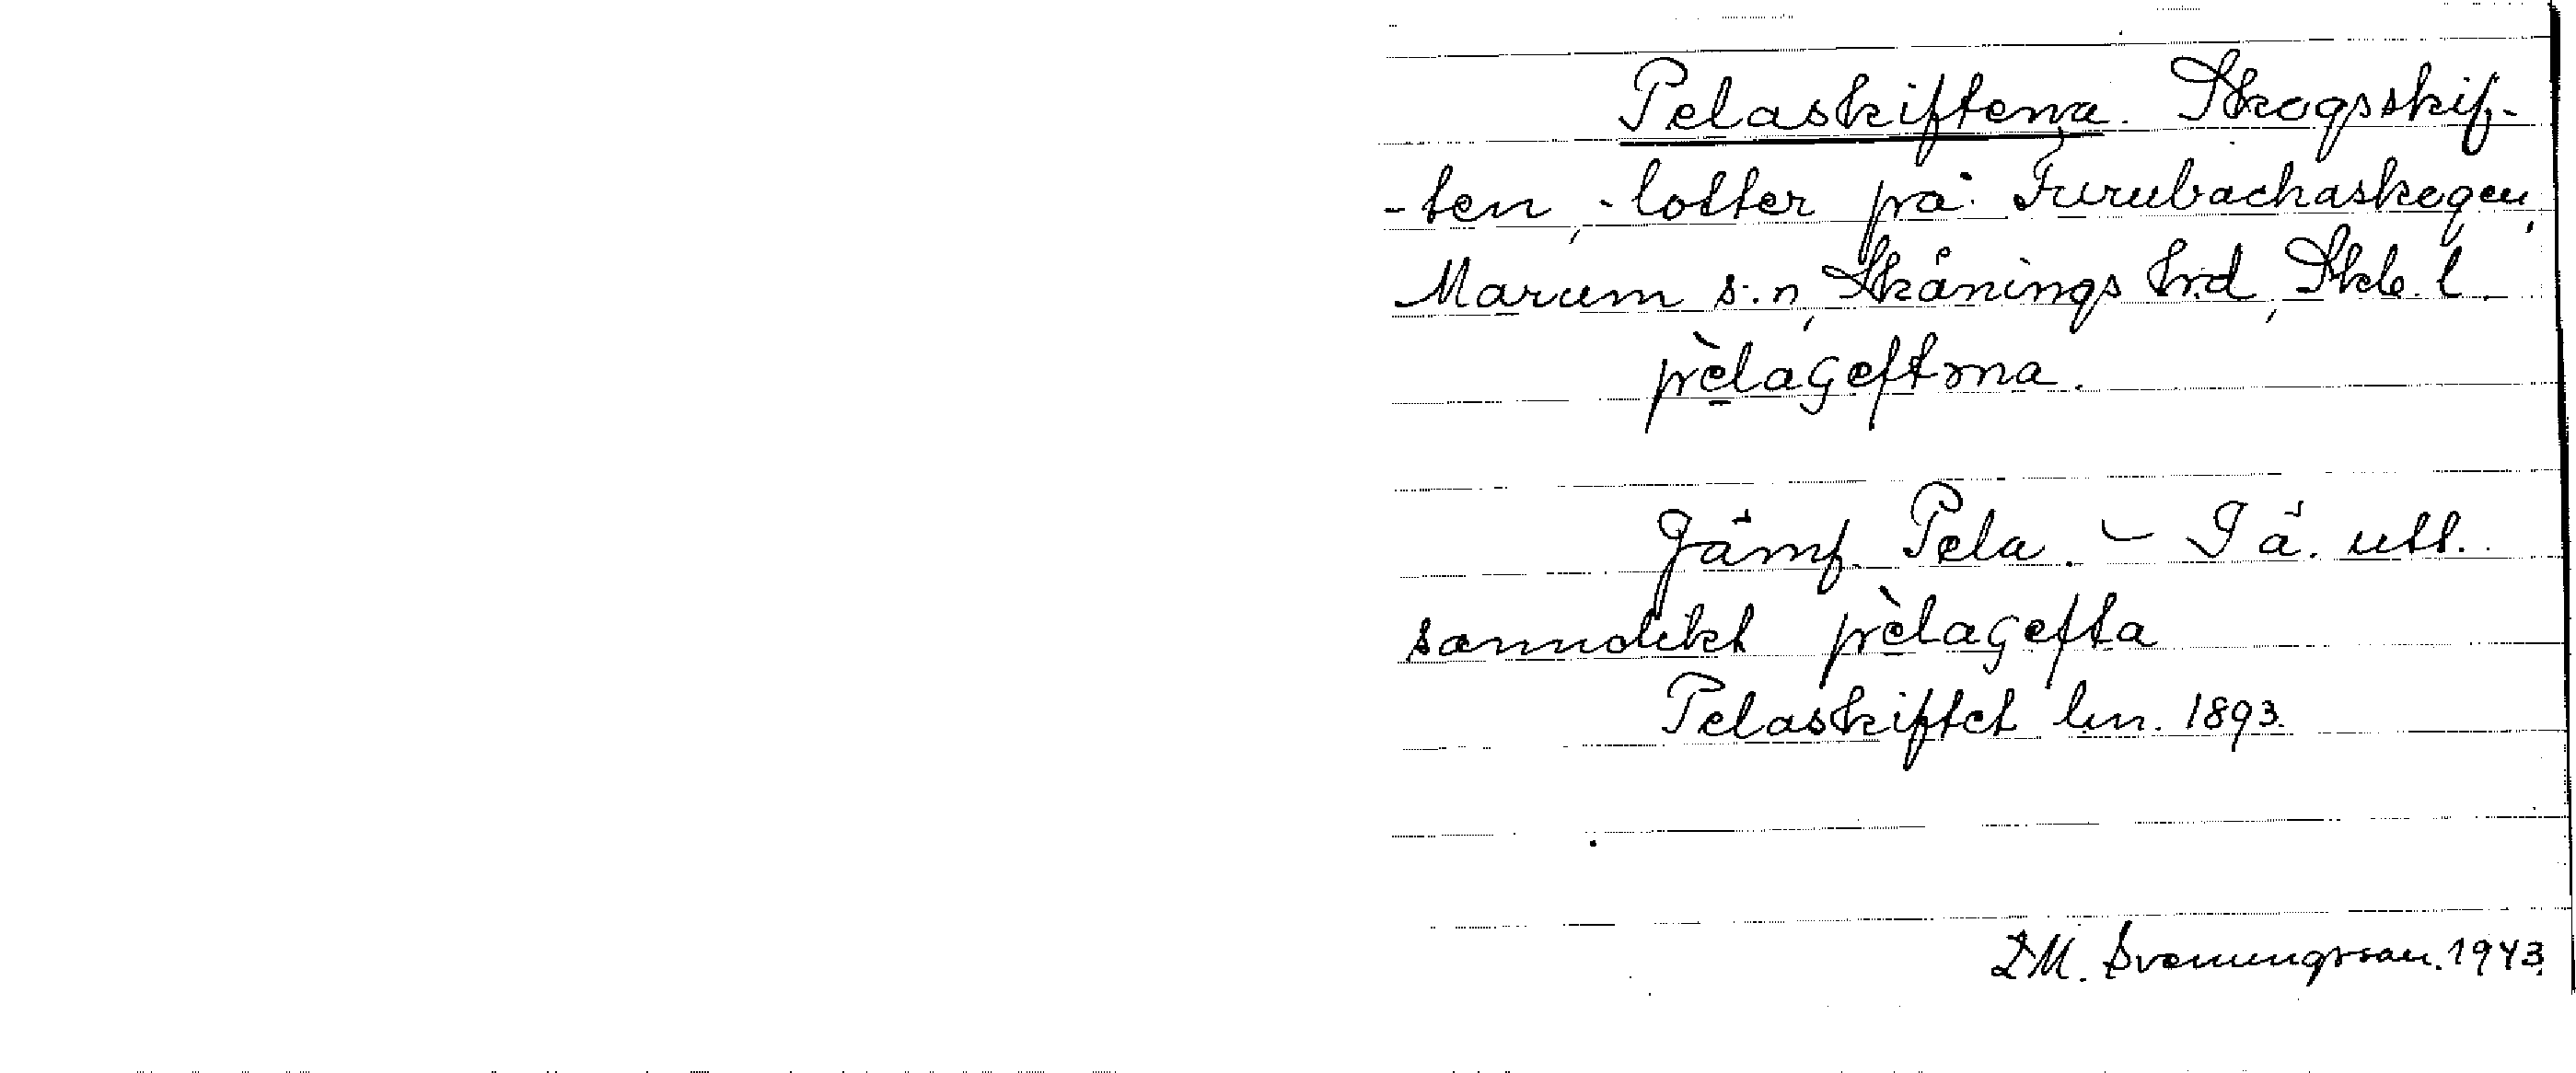 Pelaskiftena. Skogsskif-
-ten, -lotter på Furubackaskogen,
Marum s:n, Skånings hrd, Skb. l.
pè̠laɢeftɔna.
Jämf. Pela. – I ä. utt.
sannolikt pèlaɢefta
Pelaskiftet lm. 1893.
D.M. Svenungsson. 1943.